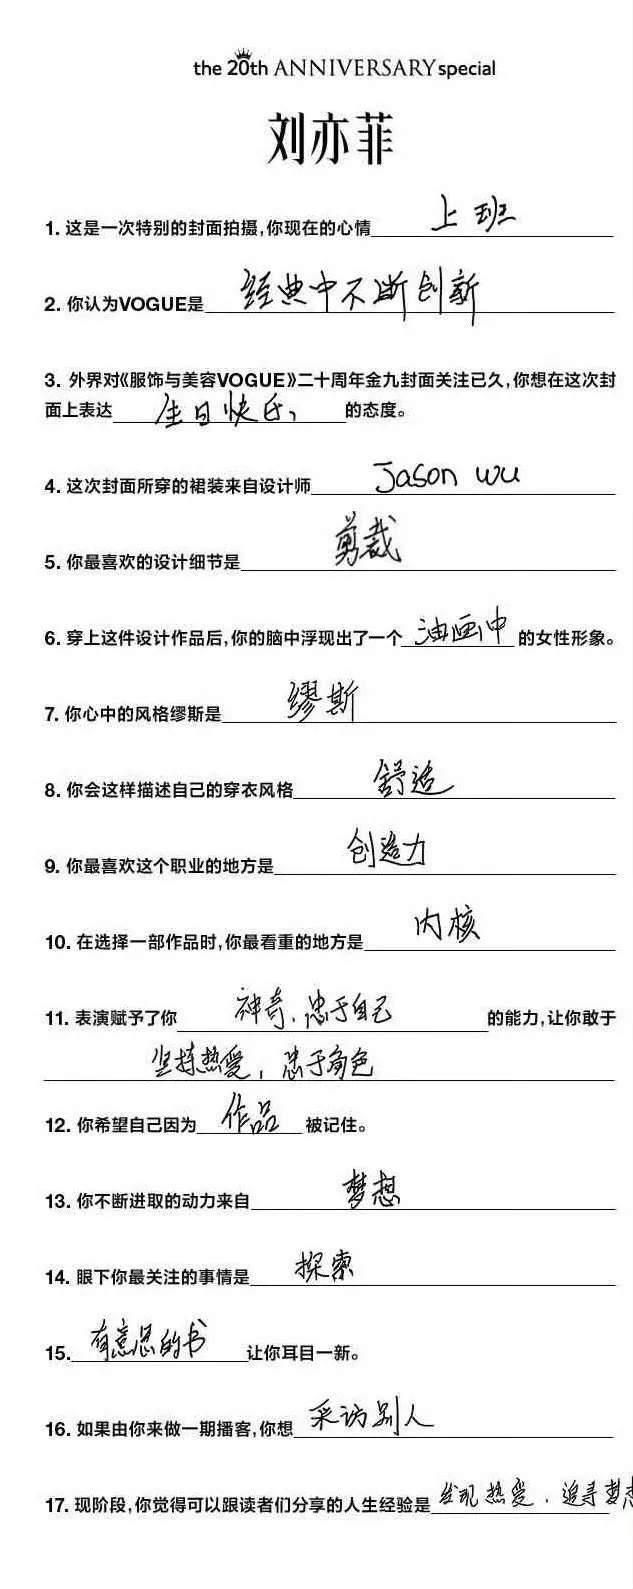 the 20th ANNIVERSARY special
刘亦菲
1. 这是一次特别的封面拍摄,你现在的心情 上班
2. 你认为VOGUE是 经典中不断创新
3. 外界对《服饰与美容VOGUE》二十周年金九封面关注已久,你想在这次封
面上表达 生日快乐 的态度。
4. 这次封面所穿的裙装来自设计师 Jason wu
5. 你最喜欢的设计细节是 剪裁
6. 穿上这件设计作品后,你的脑中浮现出了一个 油画中 的女性形象。
7. 你心中的风格缪斯是 缪斯
8. 你会这样描述自己的穿衣风格 舒适
9. 你最喜欢这个职业的地方是 创造力
10. 在选择一部作品时,你最看重的地方是 内核
11. 表演赋予了你 神奇、忠于自己 的能力,让你敢于
坚持热爱,忠于角色
12. 你希望自己因为 作品 被记住。
13. 你不断进取的动力来自 梦想
14. 眼下你最关注的事情是 探索
15. 有意思的书 让你耳目一新。
16. 如果由你来做一期播客,你想 采访别人
17. 现阶段,你觉得可以跟读者们分享的人生经验是 发现热爱、追寻梦想